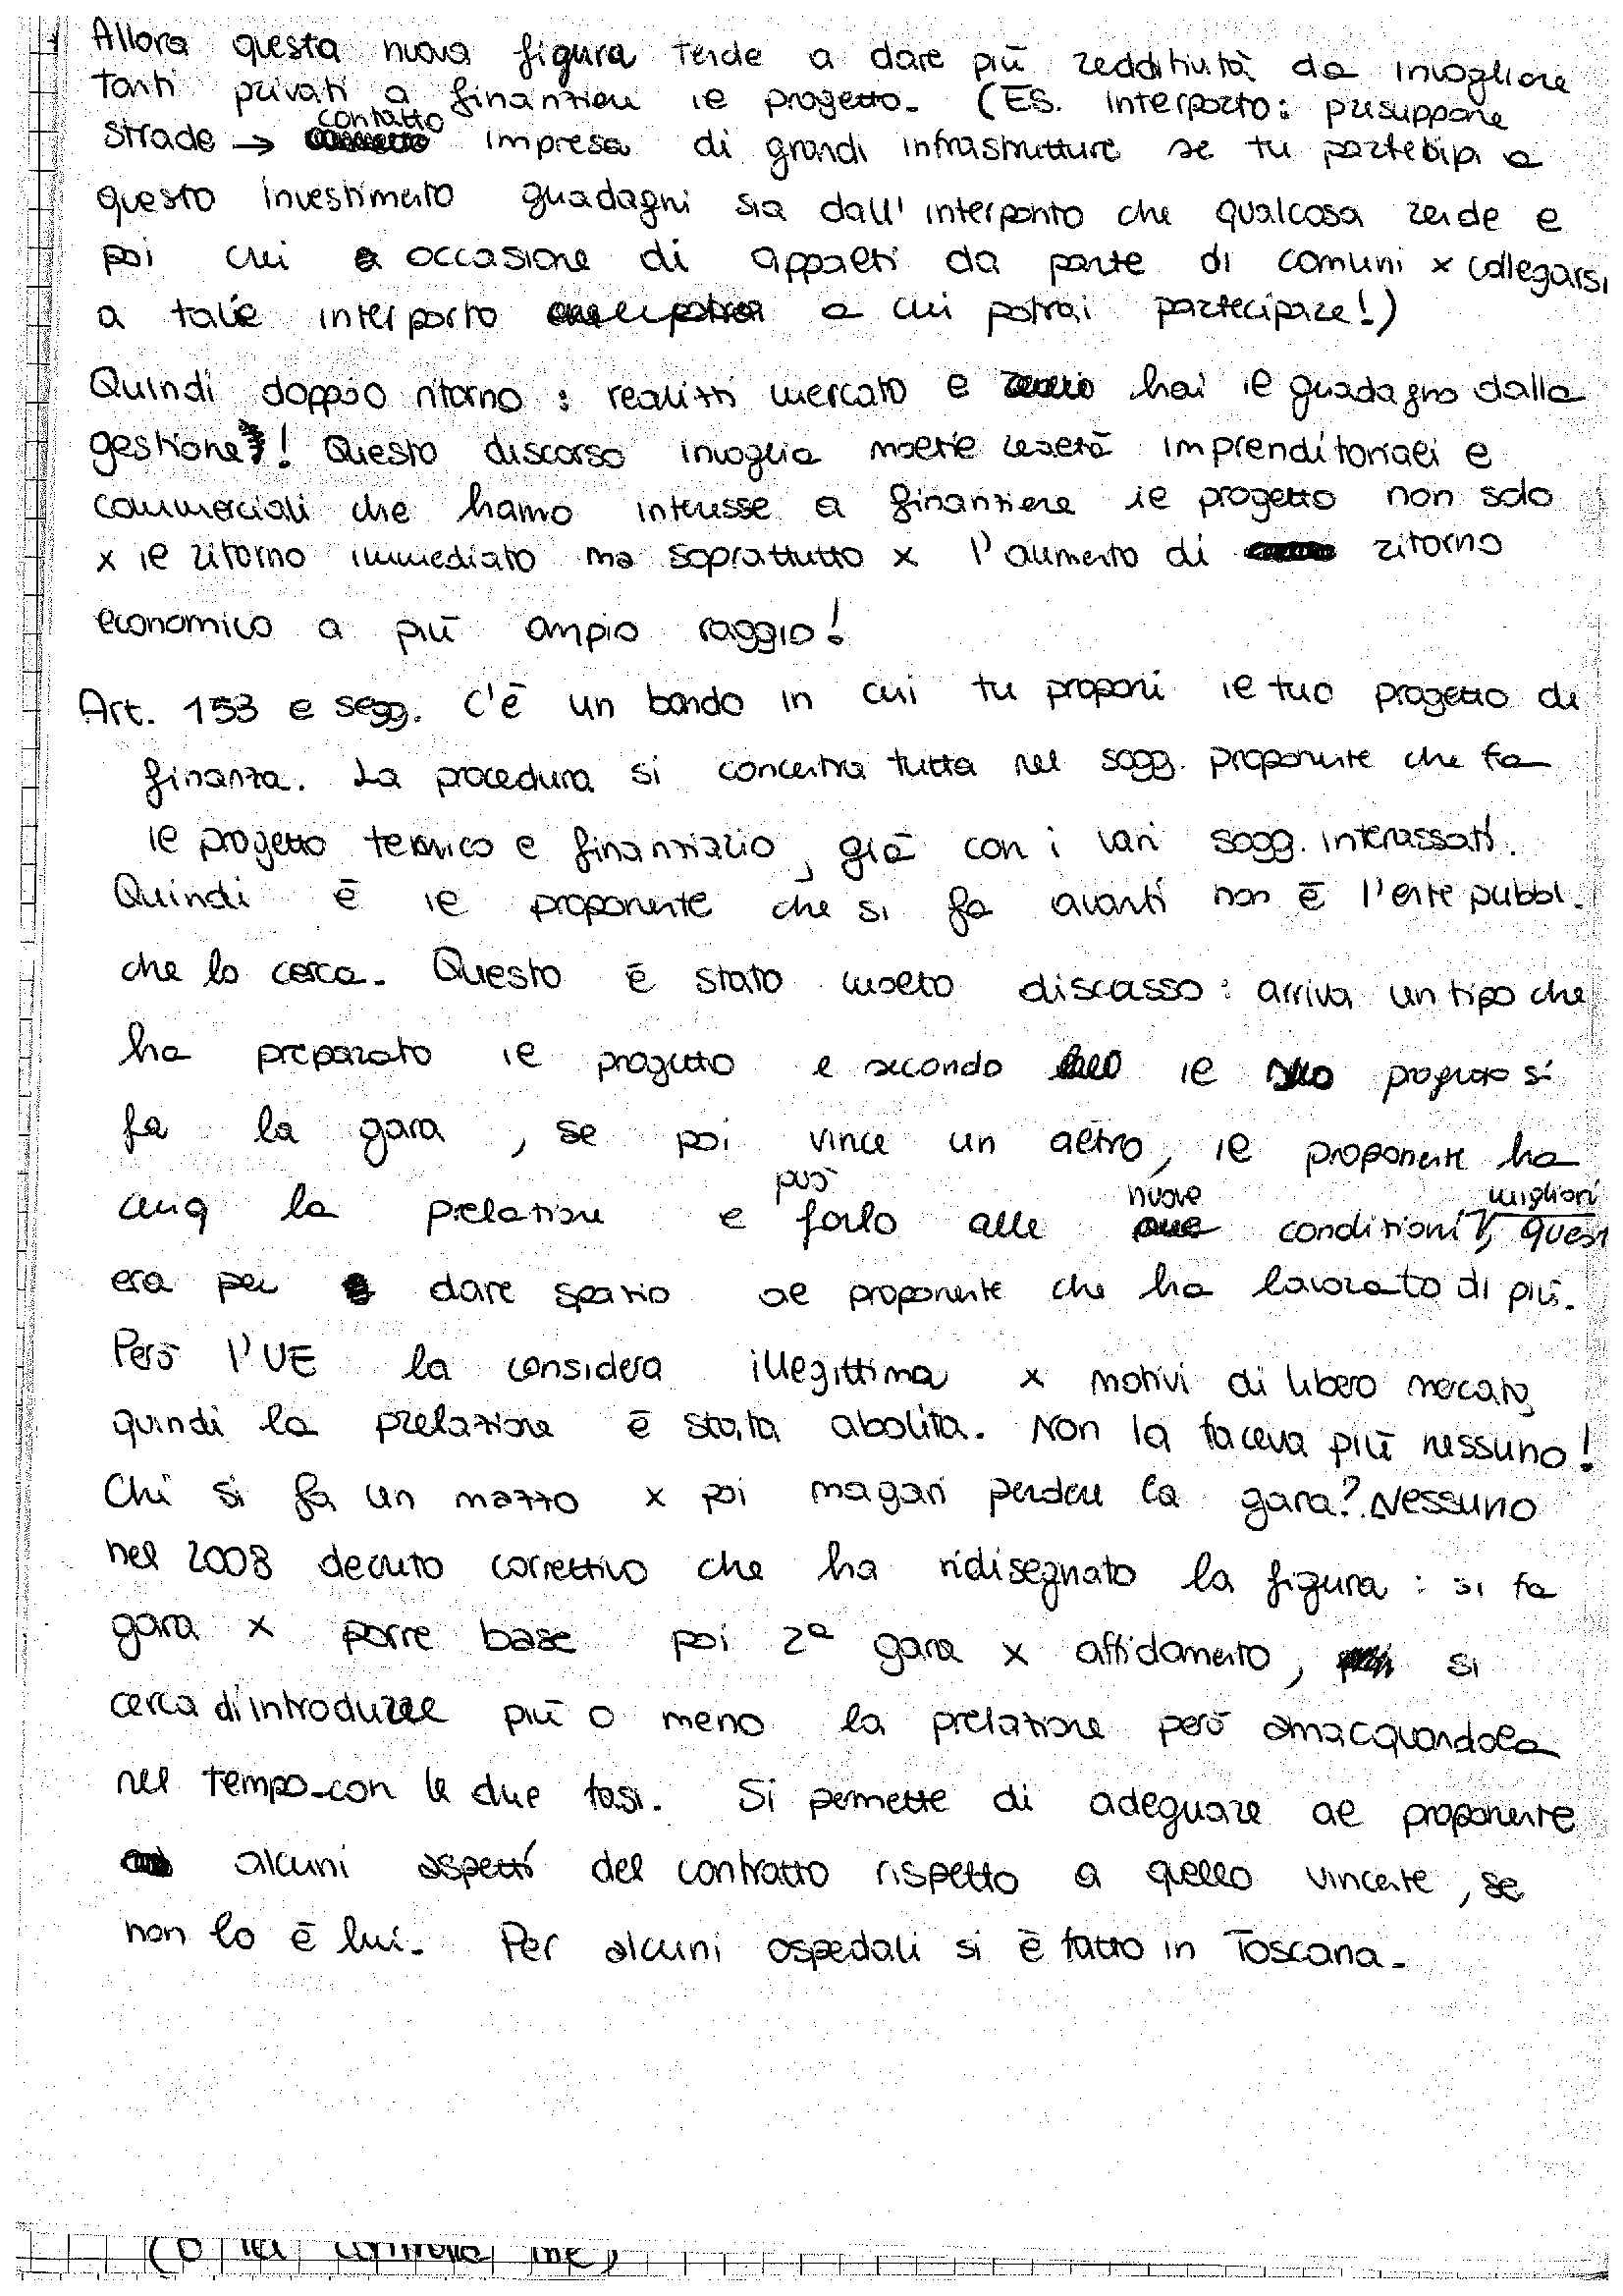 Allora questa nuova figura tende a dare più redditività da invogliare
tanti privati a finanziare il progetto. (ES. interporto: presuppone
strade → contatto impresa di grandi infrastrutture se tu partecipi a
questo investimento guadagni sia dall'interporto che qualcosa rende e
poi crei occasione di appalti da parte di comuni x collegarsi
a tale interporto a cui potrai partecipare!)
Quindi doppio ritorno: realizzi mercato e hai il guadagno dalla
gestione! Questo discorso invoglia molte realtà imprenditoriali e
commerciali che hanno interesse a finanziare il progetto non solo
x il ritorno immediato ma soprattutto x l'aumento di ritorno
economico a più ampio raggio!
Art. 153 e segg. C'è un bando in cui tu proponi il tuo progetto di
finanza. La procedura si concentra tutta nel sogg. proponente che fa
il progetto tecnico e finanziario, già con i vari sogg. interessati.
Quindi è il proponente che si fa avanti non è l'ente pubbl.
che lo cerca. Questo è stato molto discusso: arriva un tipo che
ha preparato il progetto e secondo il suo progetto si
fa la gara, se poi vince un altro, il proponente ha
cmq la prelazione e può farlo alle nuove condizioni migliori, quest
era per dare spazio al proponente che ha lavorato di più.
Però l'UE la considera illegittima x motivi di libero mercato,
quindi la prelazione è stata abolita. Non la faceva più nessuno!
Chi si fa un mazzo x poi magari perdere la gara? Nessuno
nel 2008 decreto correttivo che ha ridisegnato la figura: si fa
gara x porre base poi 2ª gara x affidamento, si
cerca di introdurre più o meno la prelazione però annacquandola
nel tempo con le due fasi. Si permette di adeguare al proponente
alcuni aspetti del contratto rispetto a quello vincente, se
non lo è lui. Per alcuni ospedali si è fatto in Toscana.